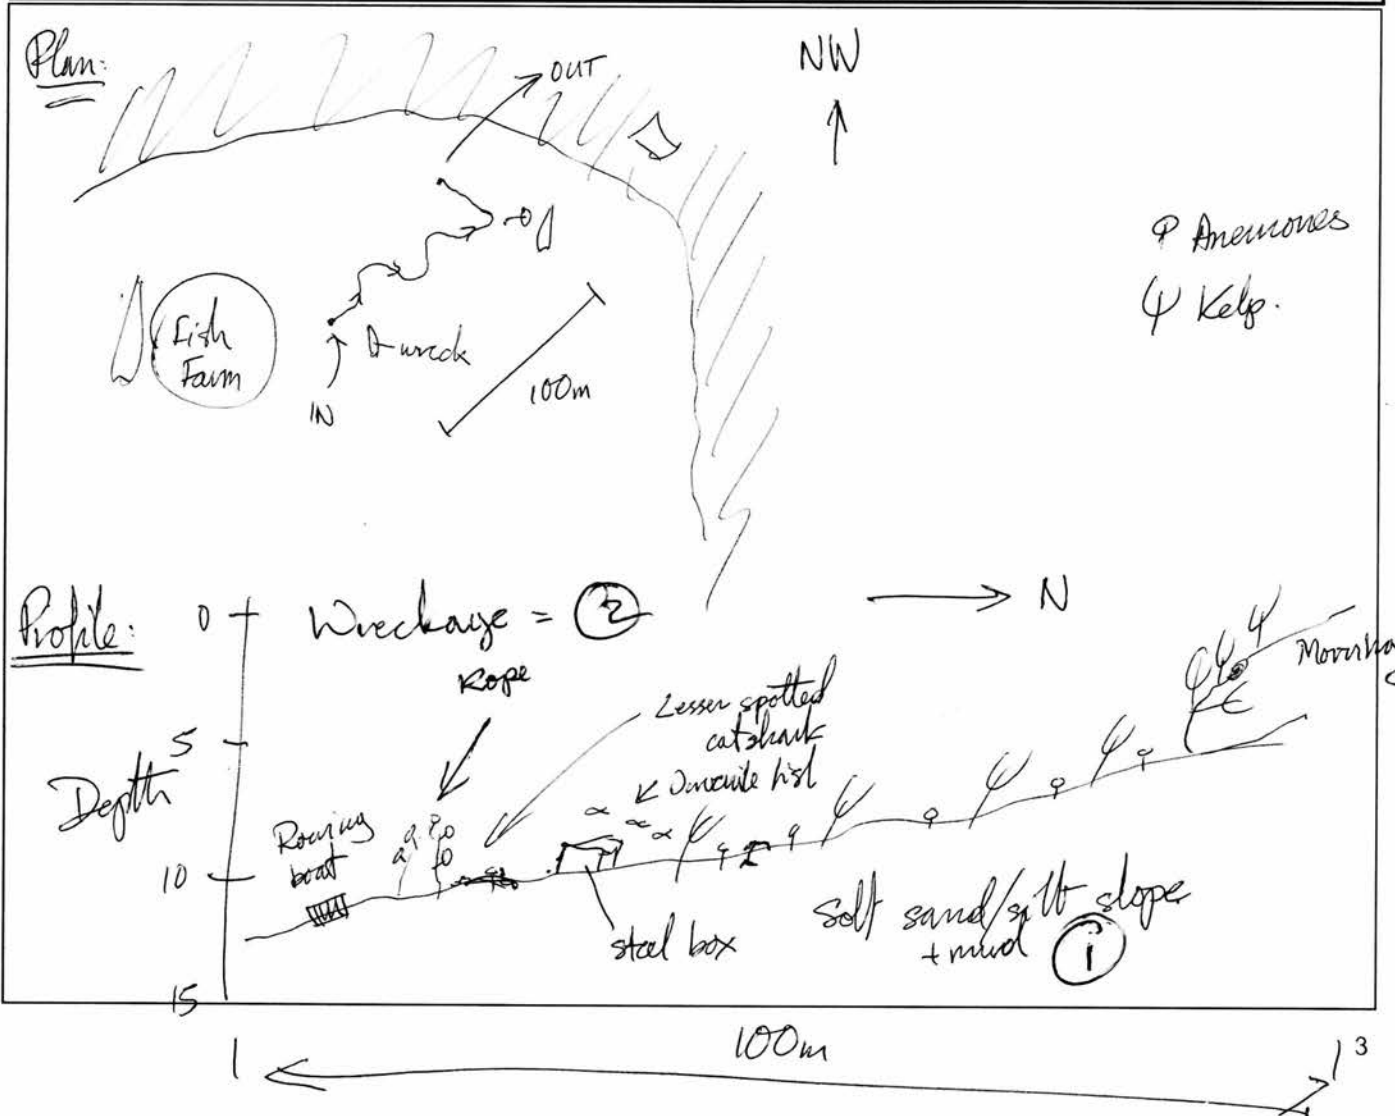 Plan:
OUT
NW
Anemones
Kelp.
Fish
Farm
wreck
IN
100m
Profile:
0
Wreckage = 2
N
Rope
Lesser spotted
catshark
Juvenile fish
5
Depth
Rowing
boat
10
steel box
Soft sand/silt slope
+ mud 1
15
100m
3